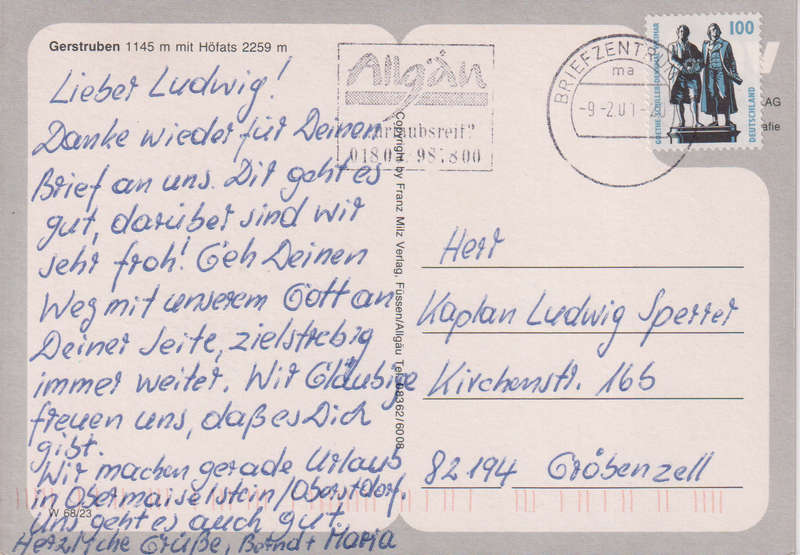 Gerstruben 1145 m mit Höfats 2259 m
Lieber Ludwig!
Danke wieder für Deinen
Brief an uns. Dir geht es
gut, darüber sind wir
sehr froh! Geh Deinen
Weg mit unserem Gott an
Deiner Seite, zielstrebig
immer weiter. Wir Gläubige
freuen uns, daß es Dich
gibt.
Wir machen gerade Urlaub
in Obermaiselstein/Oberstdorf.
Uns geht es auch gut.
Herzliche Grüße, Bernd + Maria
W 68/23
Copyright by Franz Milz Verlag, Füssen/Allgäu Tel. 08362/6008
Allgäu
BRIEFZENTRUM
ma
-9.-2.01-
100
DEUTSCHLAND
KAG
afie
Herr
Kaplan Ludwig Sperrer
Kirchenstr. 16b
82194 Gröbenzell